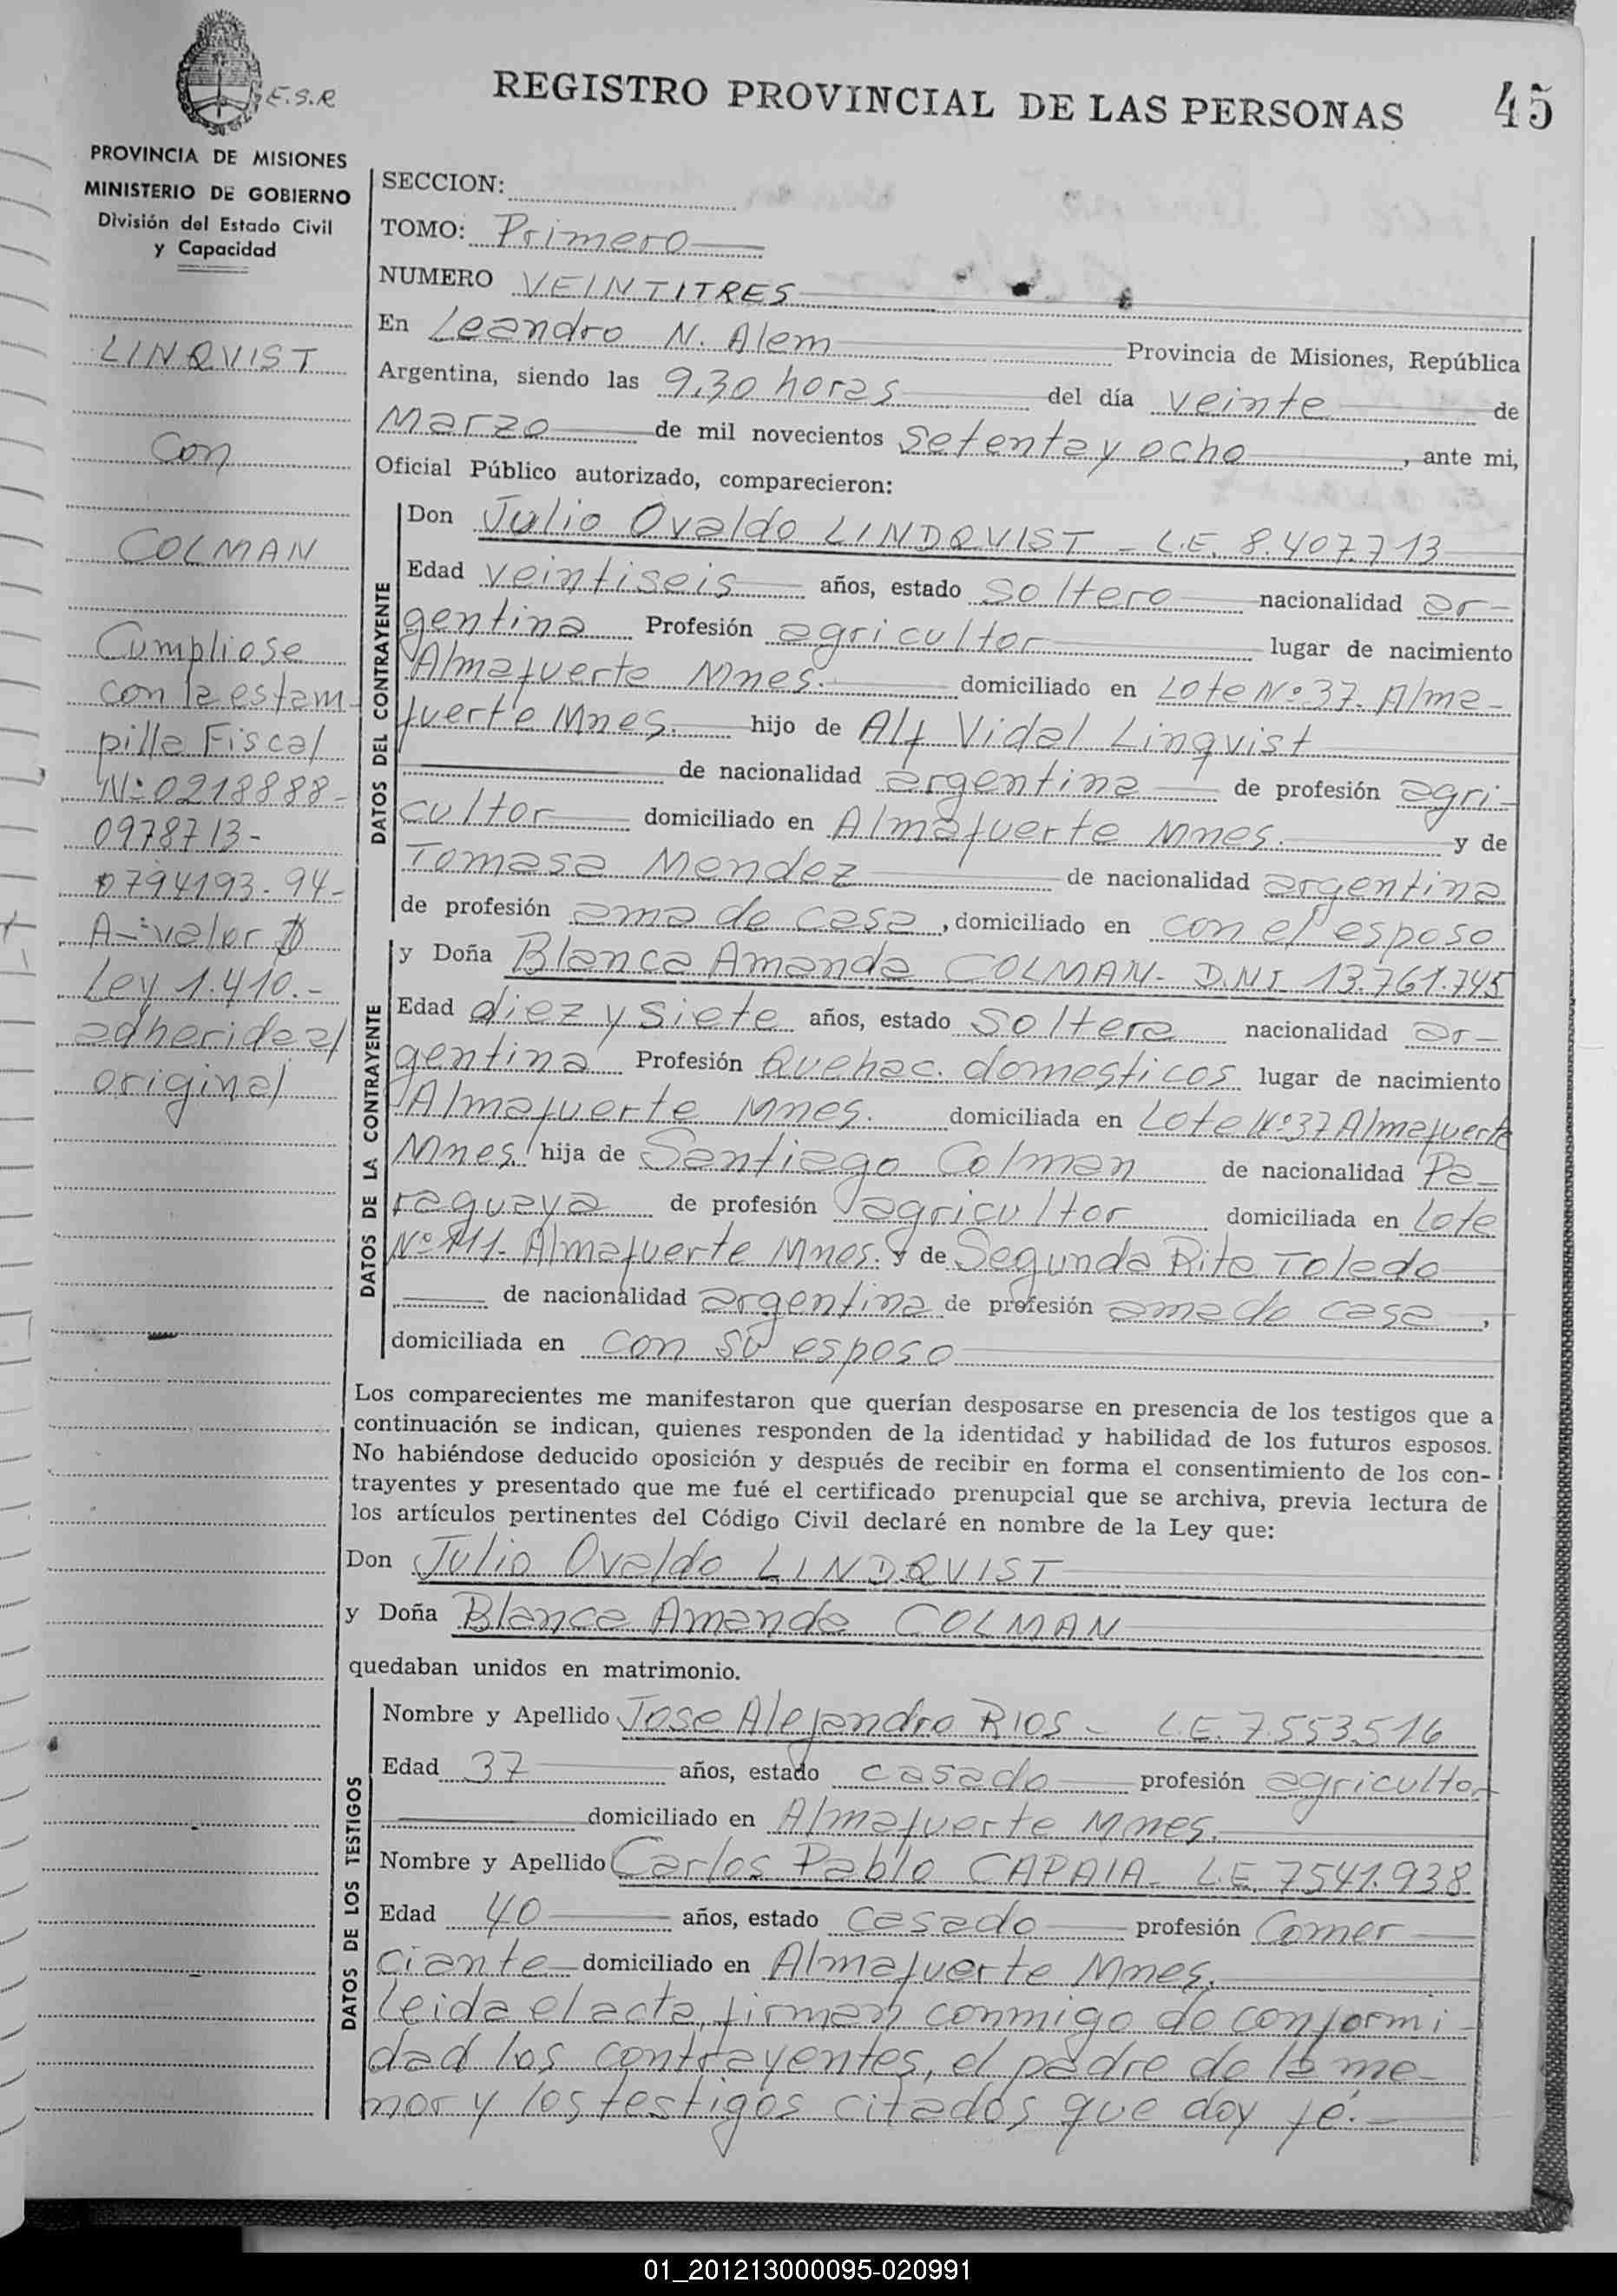 E.S.R
REGISTRO PROVINCIAL DE LAS PERSONAS
45
PROVINCIA DE MISIONES
MINISTERIO DE GOBIERNO
División del Estado Civil
y Capacidad
LINQVIST
con
COLMAN
Cumpliose
con la estam-
pilla Fiscal
Nº 0218888-
0978713-
0794193-94-
A-valor $
Ley 1.410.-
adherida al
original
SECCION:
TOMO: Primero
NUMERO VEINTITRES
En Leandro N. Alem Provincia de Misiones, República
Argentina, siendo las 9.30 horas del día veinte de
Marzo de mil novecientos setenta y ocho, ante mi,
Oficial Público autorizado, comparecieron:
DATOS DEL CONTRAYENTE
Don Julio Ovaldo LINDQVIST - L.E. 8.407.713
Edad veintiseis años, estado soltero nacionalidad ar-
gentina Profesión agricultor lugar de nacimiento
Almafuerte Mnes. domiciliado en Lote Nº 37. Alma-
fuerte Mnes. hijo de Alf Vidal Linqvist
de nacionalidad argentina de profesión agri-
cultor domiciliado en Almafuerte Mnes. y de
Tomasa Mendez de nacionalidad argentina
de profesión ama de casa, domiciliado en con el esposo
DATOS DE LA CONTRAYENTE
y Doña Blanca Amanda COLMAN- D.N.I. 13.761.745
Edad diez y siete años, estado soltera nacionalidad ar-
gentina Profesión Quehac. domesticos lugar de nacimiento
Almafuerte Mnes. domiciliada en Lote Nº 37 Almafuerte
Mnes. hija de Santiago Colman de nacionalidad Pa-
raguaya de profesión agricultor domiciliada en Lote
Nº 111. Almafuerte Mnes. y de Segunda Rita Toledo
de nacionalidad argentina de profesión ama de casa,
domiciliada en con su esposo
Los comparecientes me manifestaron que querían desposarse en presencia de los testigos que a
continuación se indican, quienes responden de la identidad y habilidad de los futuros esposos.
No habiéndose deducido oposición y después de recibir en forma el consentimiento de los con-
trayentes y presentado que me fué el certificado prenupcial que se archiva, previa lectura de
los artículos pertinentes del Código Civil declaré en nombre de la Ley que:
Don Julio Ovaldo LINDQVIST
y Doña Blanca Amanda COLMAN
quedaban unidos en matrimonio.
DATOS DE LOS TESTIGOS
Nombre y Apellido Jose Alejandro RIOS - L.E. 7.553.516
Edad 37 años, estado casado profesión agricultor
domiciliado en Almafuerte Mnes.
Nombre y Apellido Carlos Pablo CAPAIA- L.E. 7541.938
Edad 40 años, estado casado profesión Comer
ciante domiciliado en Almafuerte Mnes.
Leida el acta, firman conmigo de conformi-
dad los contrayentes, el padre de la me-
nor y los testigos citados que doy fé.-
01_201213000095-020991